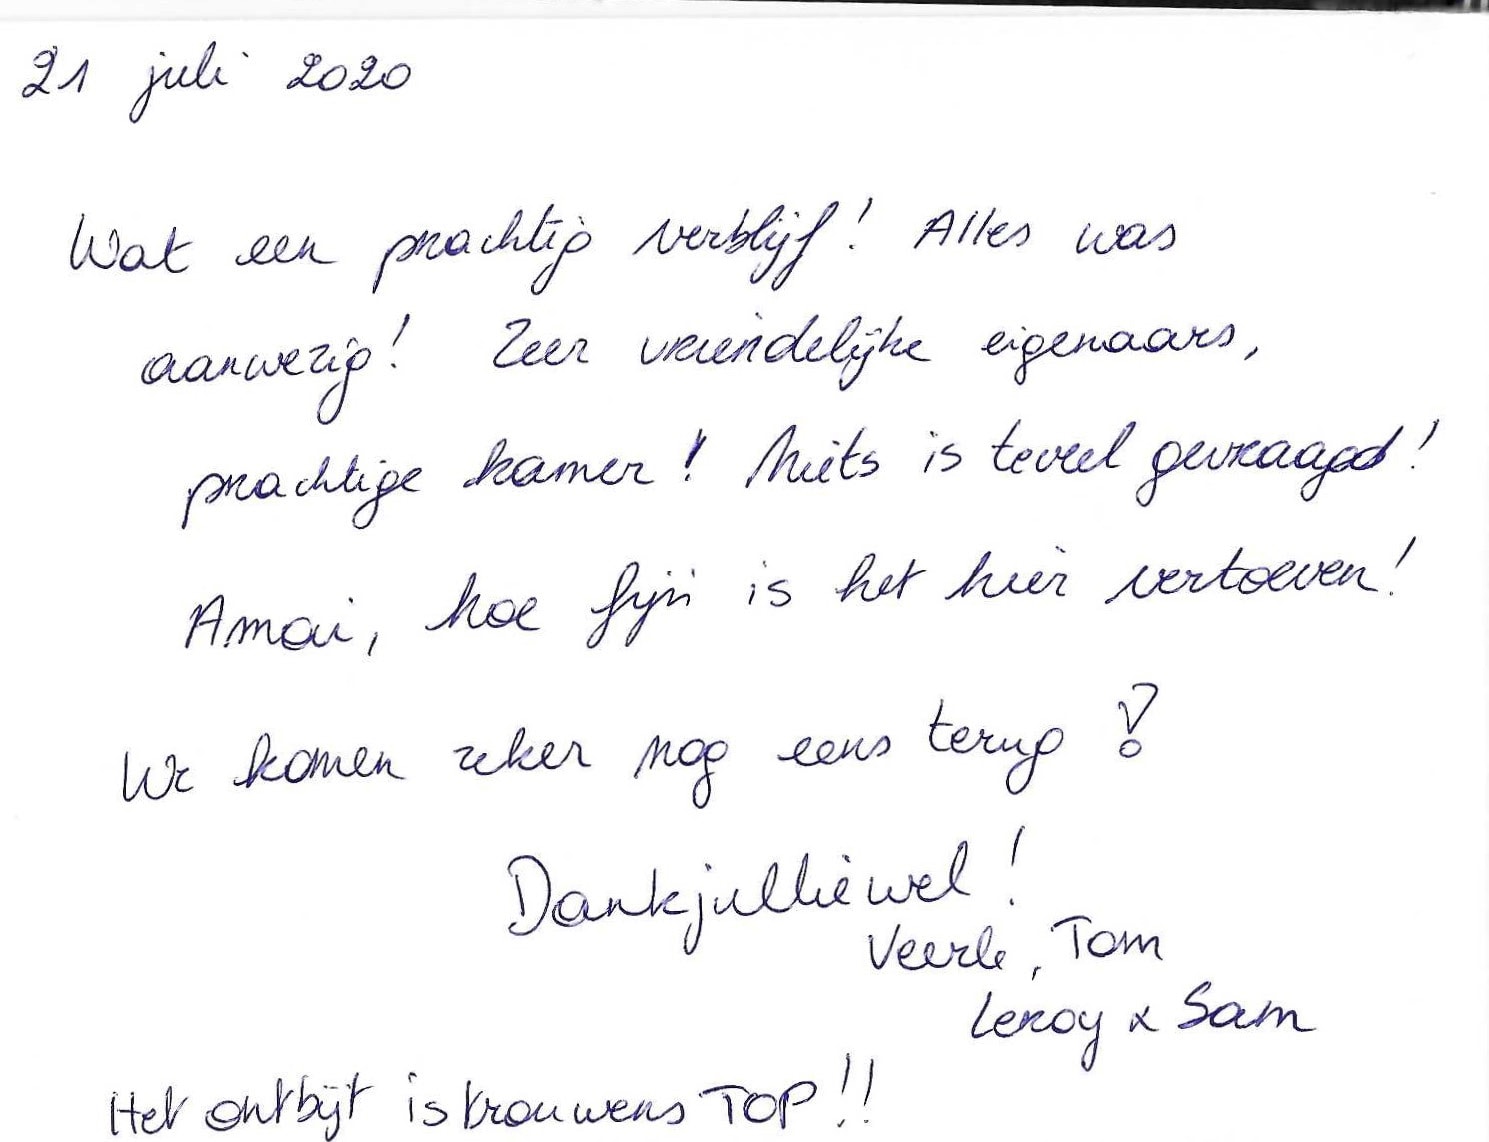 21 juli 2020
Wat een prachtig verblijf! Alles was
aanwezig! Zeer vriendelijke eigenaars,
prachtige kamer! Niets is teveel gevraagd!
Amai, hoe fijn is het hier vertoeven!
We komen zeker nog eens terug!
Dankjulliewel!
Veerle, Tom
Leroy & Sam
Het ontbijt is trouwens TOP!!